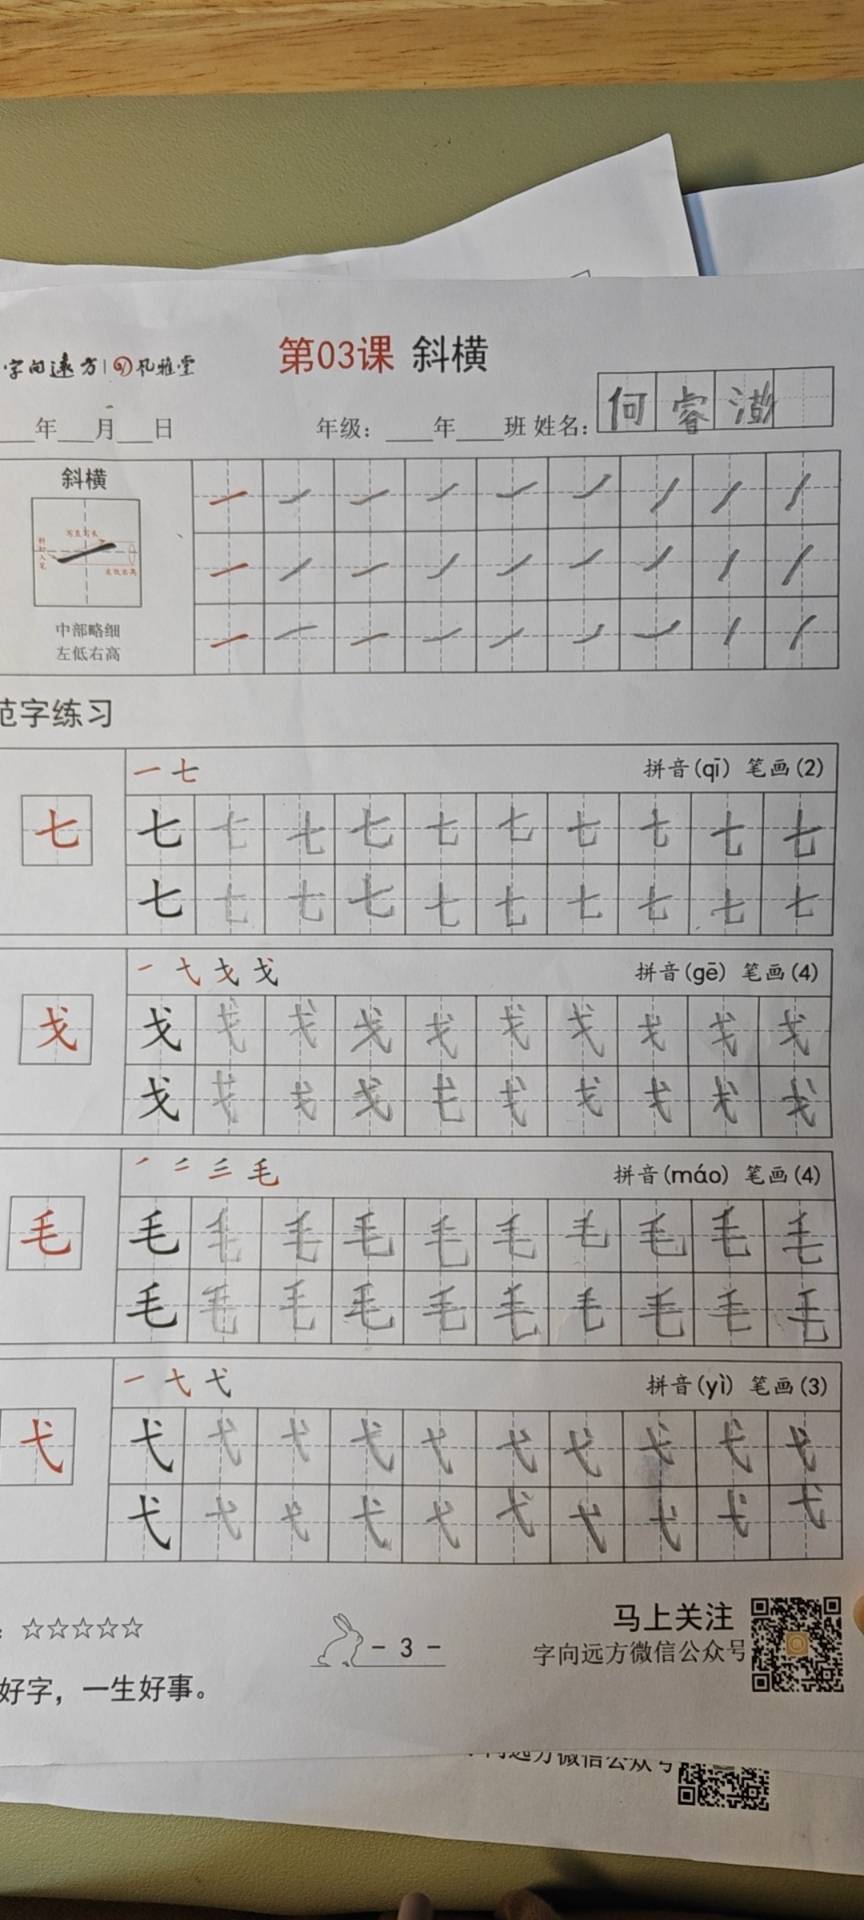 字向远方 风雅堂
第03课 斜横
年 月 日 年级： 年 班 姓名： 何睿澎
斜横
中部略细
左低右高
范字练习
一 七 拼音(qī) 笔画(2)
七 七 七 七 七 七 七 七 七 七 七
七 七 七 七 七 七 七 七 七 七
一 弋 戈 戈 拼音(gē) 笔画(4)
戈 戈 戈 戈 戈 戈 戈 戈 戈 戈 戈
戈 戈 戈 戈 戈 戈 戈 戈 戈 戈
毛 拼音(máo) 笔画(4)
毛 毛 毛 毛 毛 毛 毛 毛 毛 毛 毛
毛 毛 毛 毛 毛 毛 毛 毛 毛 毛
一 弋 弋 拼音(yì) 笔画(3)
弋 弋 弋 弋 弋 弋 弋 弋 弋 弋 弋
弋 弋 弋 弋 弋 弋 弋 弋 弋 弋
：☆☆☆☆☆
好字，一生好事。
- 3 -
马上关注
字向远方微信公众号
向远方微信公众号